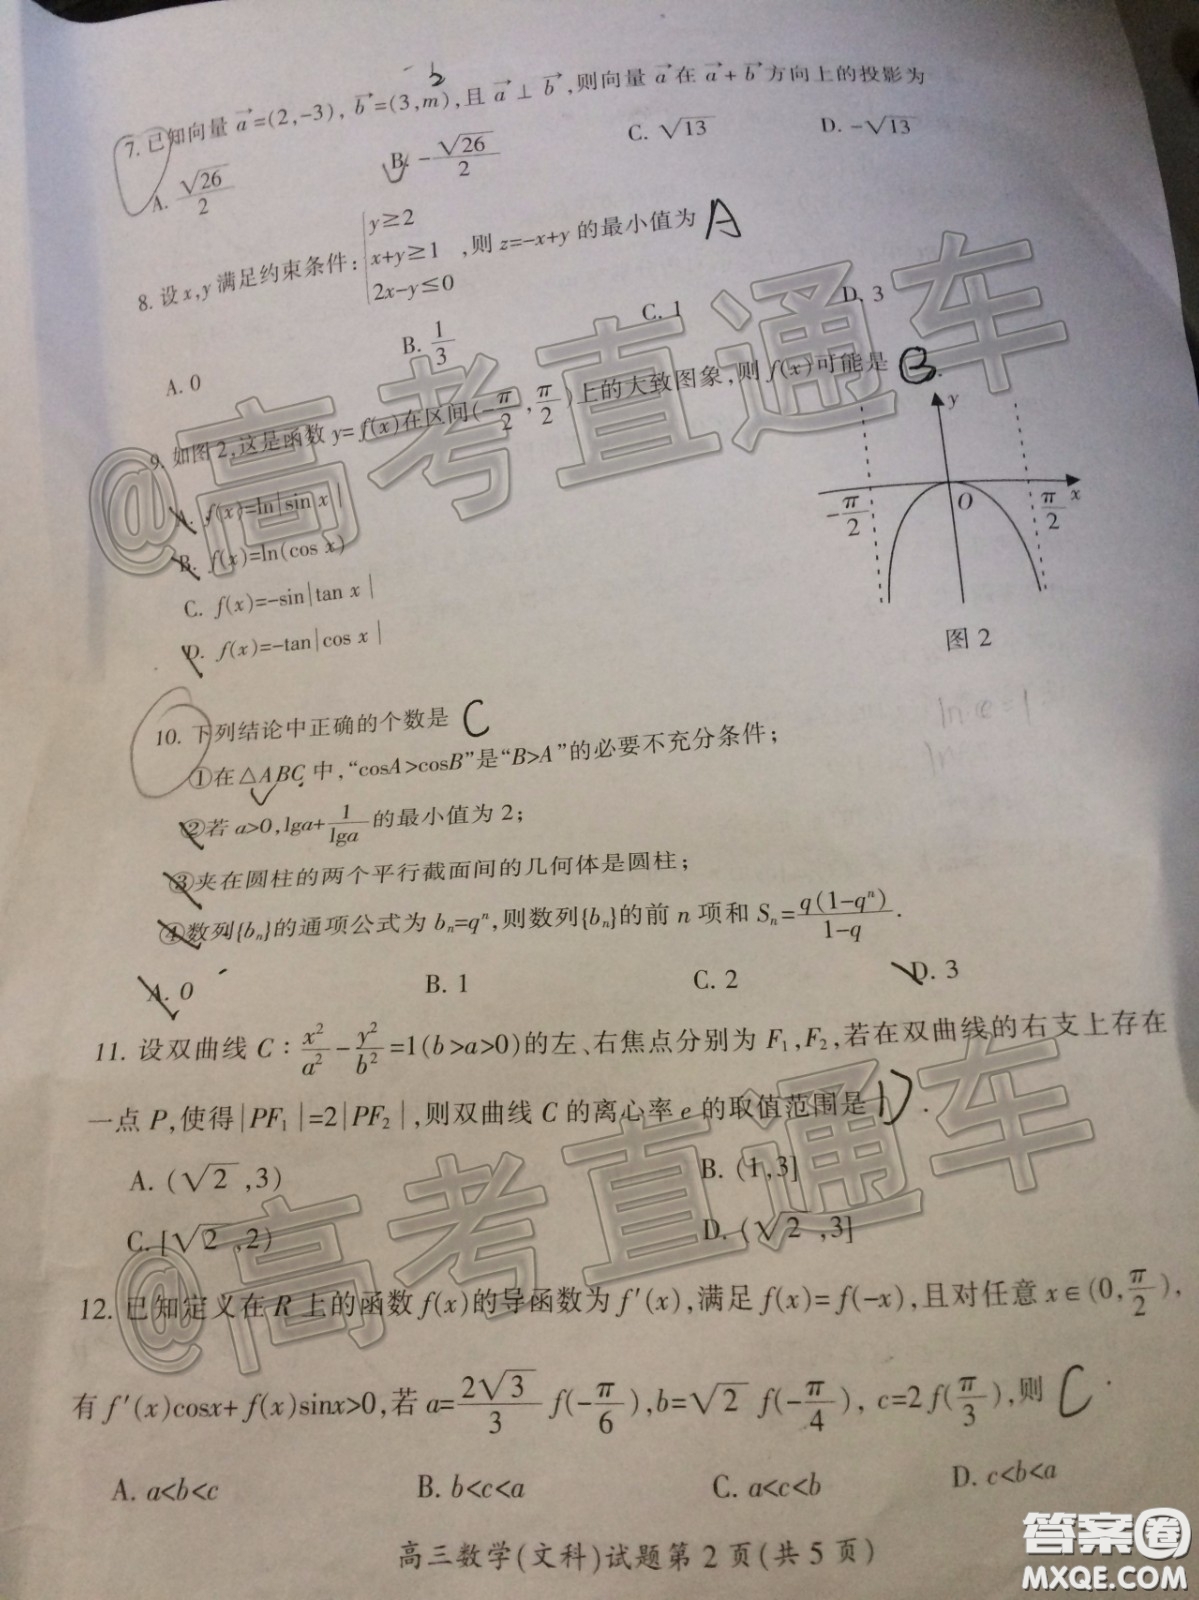 7. 已知向量 a⃗=(2,-3), b⃗=(3,m),且 a⃗⊥b⃗,则向量 a⃗ 在 a⃗+b⃗ 方向上的投影为
A. √26/2 B. -√26/2 C. √13 D. -√13
8. 设x,y满足约束条件: { y≥2
x+y≥1 ,则 z=-x+y 的最小值为 A
2x-y≤0
A. 0 B. 1/3 C. 1 D. 3
9. 如图2,这是函数 y=f(x)在区间(-π/2,π/2)上的大致图象,则 f(x)可能是 B.
A. f(x)=ln|sin x|
B. f(x)=ln(cos x)
C. f(x)=-sin|tan x|
D. f(x)=-tan|cos x|
y
O
x
-π/2
π/2
图2
ln e=1
ln
10. 下列结论中正确的个数是 C
①在△ABC中,“cosA>cosB”是“B>A”的必要不充分条件;
②若 a>0,lga+1/lga 的最小值为2;
③夹在圆柱的两个平行截面间的几何体是圆柱;
④数列{bₙ}的通项公式为 bₙ=qⁿ,则数列{bₙ}的前 n 项和 Sₙ=q(1-qⁿ)/(1-q).
A. 0 B. 1 C. 2 D. 3
11. 设双曲线 C:x²/a²-y²/b²=1(b>a>0)的左、右焦点分别为 F₁,F₂,若在双曲线的右支上存在
一点 P,使得|PF₁|=2|PF₂|,则双曲线 C 的离心率 e 的取值范围是 D.
A. (√2,3) B. (1,3]
C. [√2,2) D. (√2,3]
12. 已知定义在 R 上的函数 f(x)的导函数为 f′(x),满足 f(x)=f(-x),且对任意 x∈(0,π/2),
有 f′(x)cosx+f(x)sinx>0,若 a=2√3/3 f(-π/6),b=√2 f(-π/4), c=2f(π/3),则 C.
A. a<b<c B. b<c<a C. a<c<b D. c<b<a
高三数学(文科)试题第2页(共5页)
@高考直通车
@高考直通车
答案圈
MXQE.COM